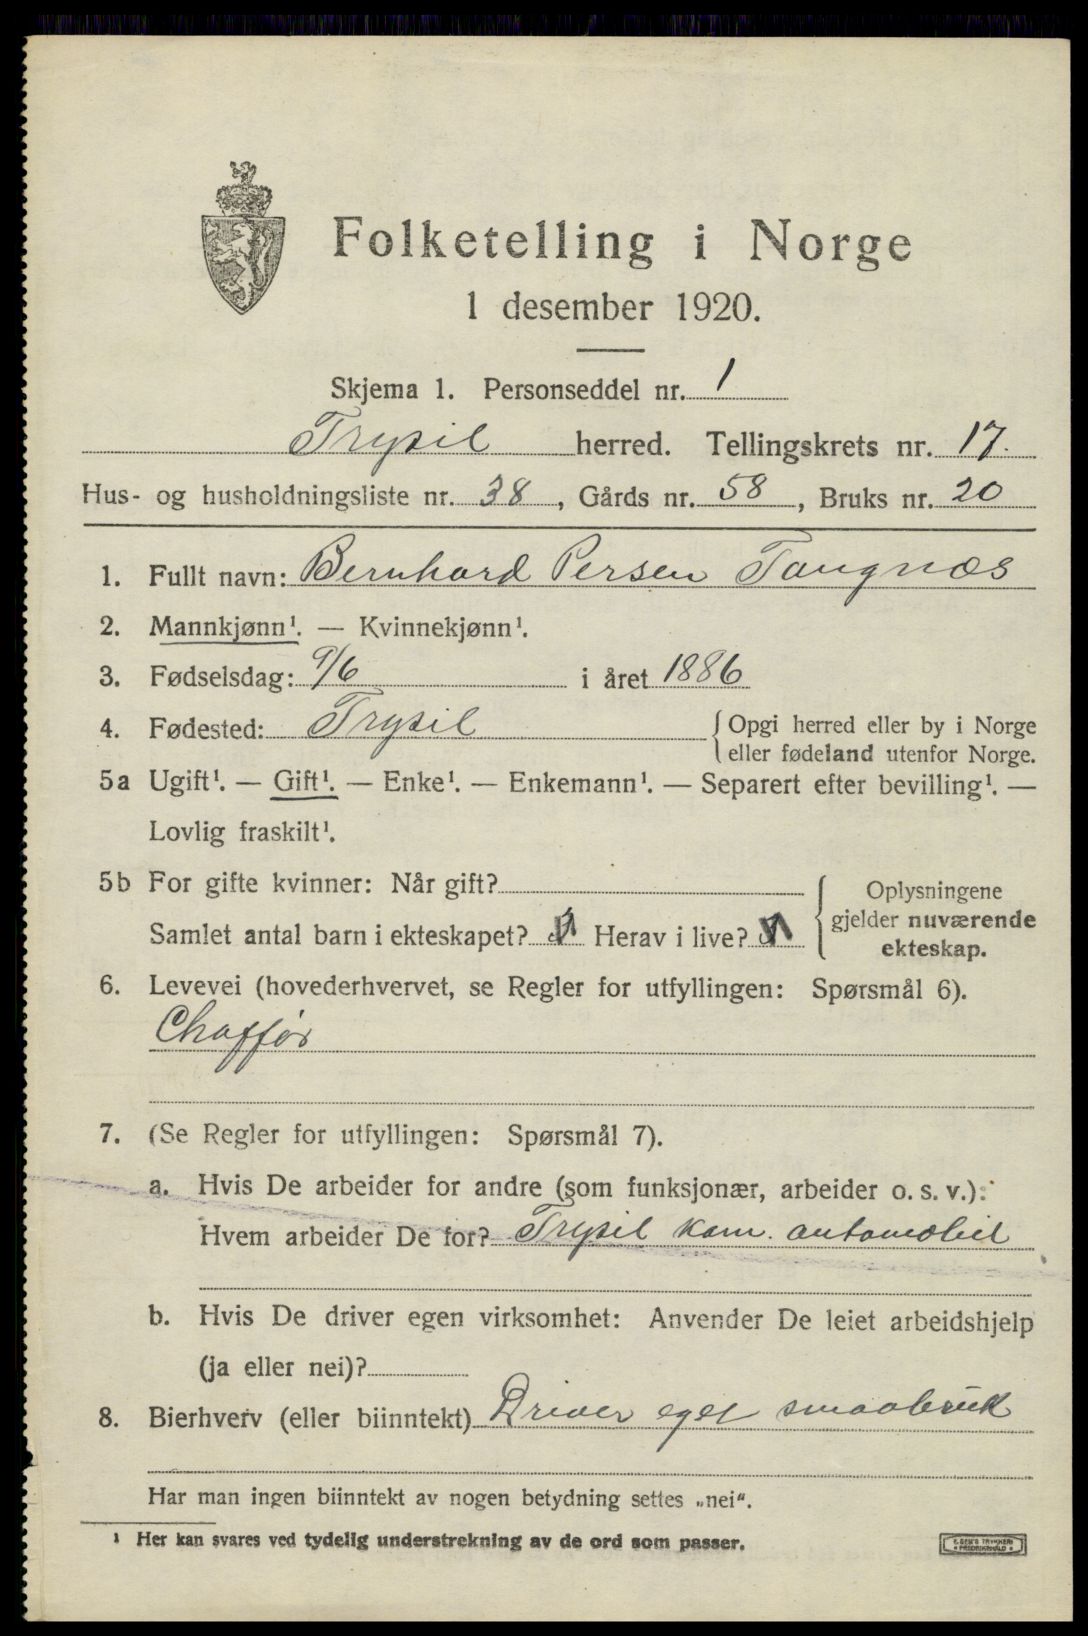 Folketelling i Norge
1 desember 1920.
Skjema 1. Personseddel nr. 1
Trysil herred. Tellingskrets nr. 17.
Hus- og husholdningsliste nr. 38, Gårds nr. 58, Bruks nr. 20
1. Fullt navn: Bernhard Persen Tangnæs
2. Mannkjønn¹. — Kvinnekjønn¹.
3. Fødselsdag: 9/6 i året 1886
4. Fødested: Trysil { Opgi herred eller by i Norge
eller fødeland utenfor Norge.
5a Ugift¹. — Gift¹. — Enke¹. — Enkemann¹. — Separert efter bevilling¹. —
Lovlig fraskilt¹.
5b For gifte kvinner: Når gift?
Samlet antal barn i ekteskapet? Herav i live?
Oplysningene
gjelder nuværende
ekteskap.
6. Levevei (hovederhvervet, se Regler for utfyllingen: Spørsmål 6).
Chaffør
7. (Se Regler for utfyllingen: Spørsmål 7).
a. Hvis De arbeider for andre (som funksjonær, arbeider o. s. v.):
Hvem arbeider De for? Trysil kom. automobil
b. Hvis De driver egen virksomhet: Anvender De leiet arbeidshjelp
(ja eller nei)?
8. Bierhverv (eller biinntekt) Driver eget smaabruk
Har man ingen biinntekt av nogen betydning settes „nei“.
¹ Her kan svares ved tydelig understrekning av de ord som passer.